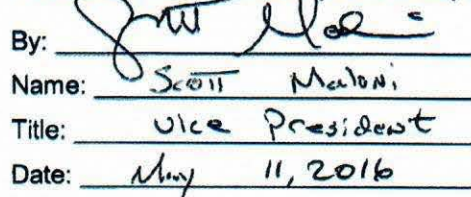 By: Scott Maloni
Name: Scott Maloni
Title: Vice President
Date: May 11, 2016